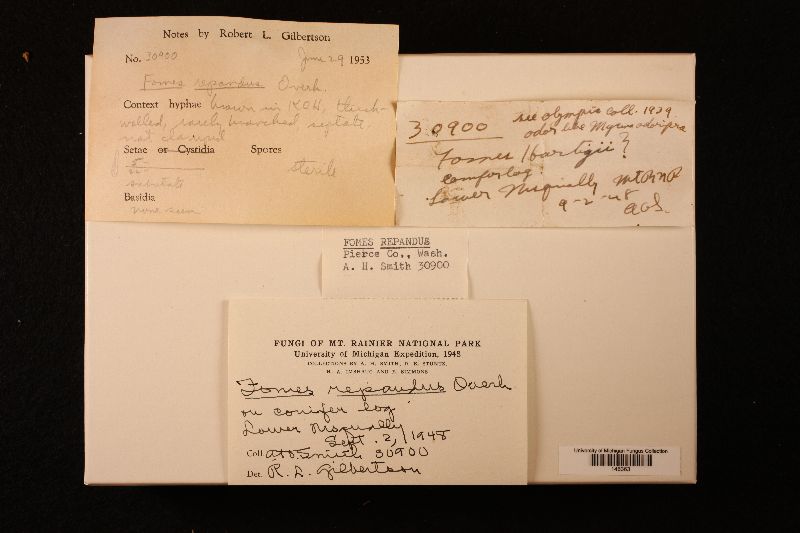 Notes by Robert L. Gilbertson
No. 30900 June 29 1953
Fomes repandus Overh.
Context hyphae brown in KOH, thick-
walled, rarely branched septate
not clamped
Setae or Cystidia Spores
sterile
substrate
Basidia
none seen
30900 see olympic coll. 1939
odor like
Fomes hartgii?
conifer log
Lower Nisqually Mt R N P
9-2-48
AHS.
FOMES REPANDUS
Pierce Co., Wash.
A. H. Smith 30900
FUNGI OF MT. RAINIER NATIONAL PARK
University of Michigan Expedition, 1948
COLLECTIONS BY A. H. SMITH, D. E. STUNTZ,
E. A. IMSHAUG AND E. SIMMONS
Fomes repandus Overh
on conifer log
Lower Nisqually
Sept. 2, 1948
Coll. AH Smith 30900
Det. R. L. Gilbertson
University of Michigan Fungus Collection